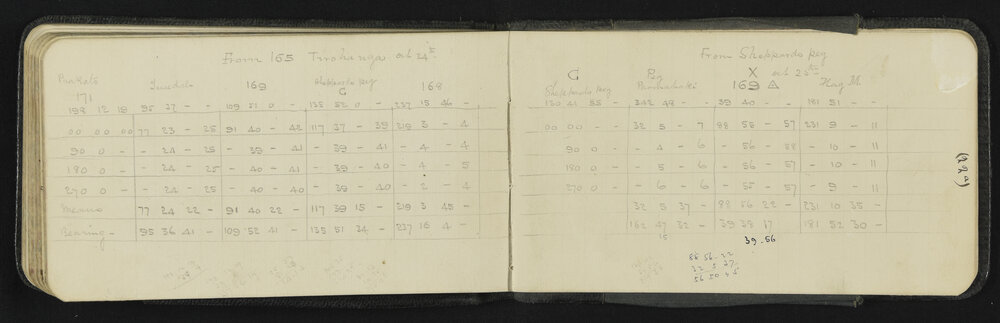 From 165 Tirohanga oct 24th
Pukato Tuedib 169 Sheppards peg G 168
171
198 12 19 95 37 - - 109 51 0 - 135 52 0 - 237 15 46 -
00 00 00 77 23 - 25 91 40 - 42 117 37 - 39 219 3 - 4
90 0 - - 24 - 25 - 39 - 41 - 39 - 41 - 4 - 4
180 0 - - 24 - 25 - 40 - 41 - 39 - 40 - 4 - 5
270 0 - - 24 - 25 - 40 - 40 - 39 - 40 - 2 - 4
Means 77 24 22 - 91 40 22 - 117 39 15 - 219 3 45 -
Bearing - 95 36 41 - 109 52 41 - 135 51 34 - 237 16 4 -
From Sheppards peg
X oct 25th
G Peg 169 △ Flag M.
Sheppards peg
130 41 55 - 312 48 - - 39 40 - - 181 51 - -
00 00 - - 32 5 - 7 88 55 - 57 231 9 - 11
90 0 - - 4 - 6 - 56 - 58 - 10 - 11
180 0 - - 5 - 6 - 56 - 57 - 10 - 11
270 0 - - 6 - 6 - 55 - 57 - 9 - 11
32 5 37 - 88 56 22 - 231 10 35 -
162 47 32 - 39 38 17 181 52 30 -
15 39.56
88 56.22
32 5 37
56 50 45
(22a)